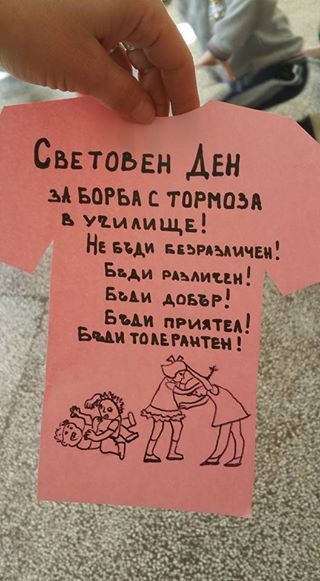 Световен Ден
за борба с тормоза
в училище!
Не бъди безразличен!
Бъди различен!
Бъди добър!
Бъди приятел!
Бъди толерантен!